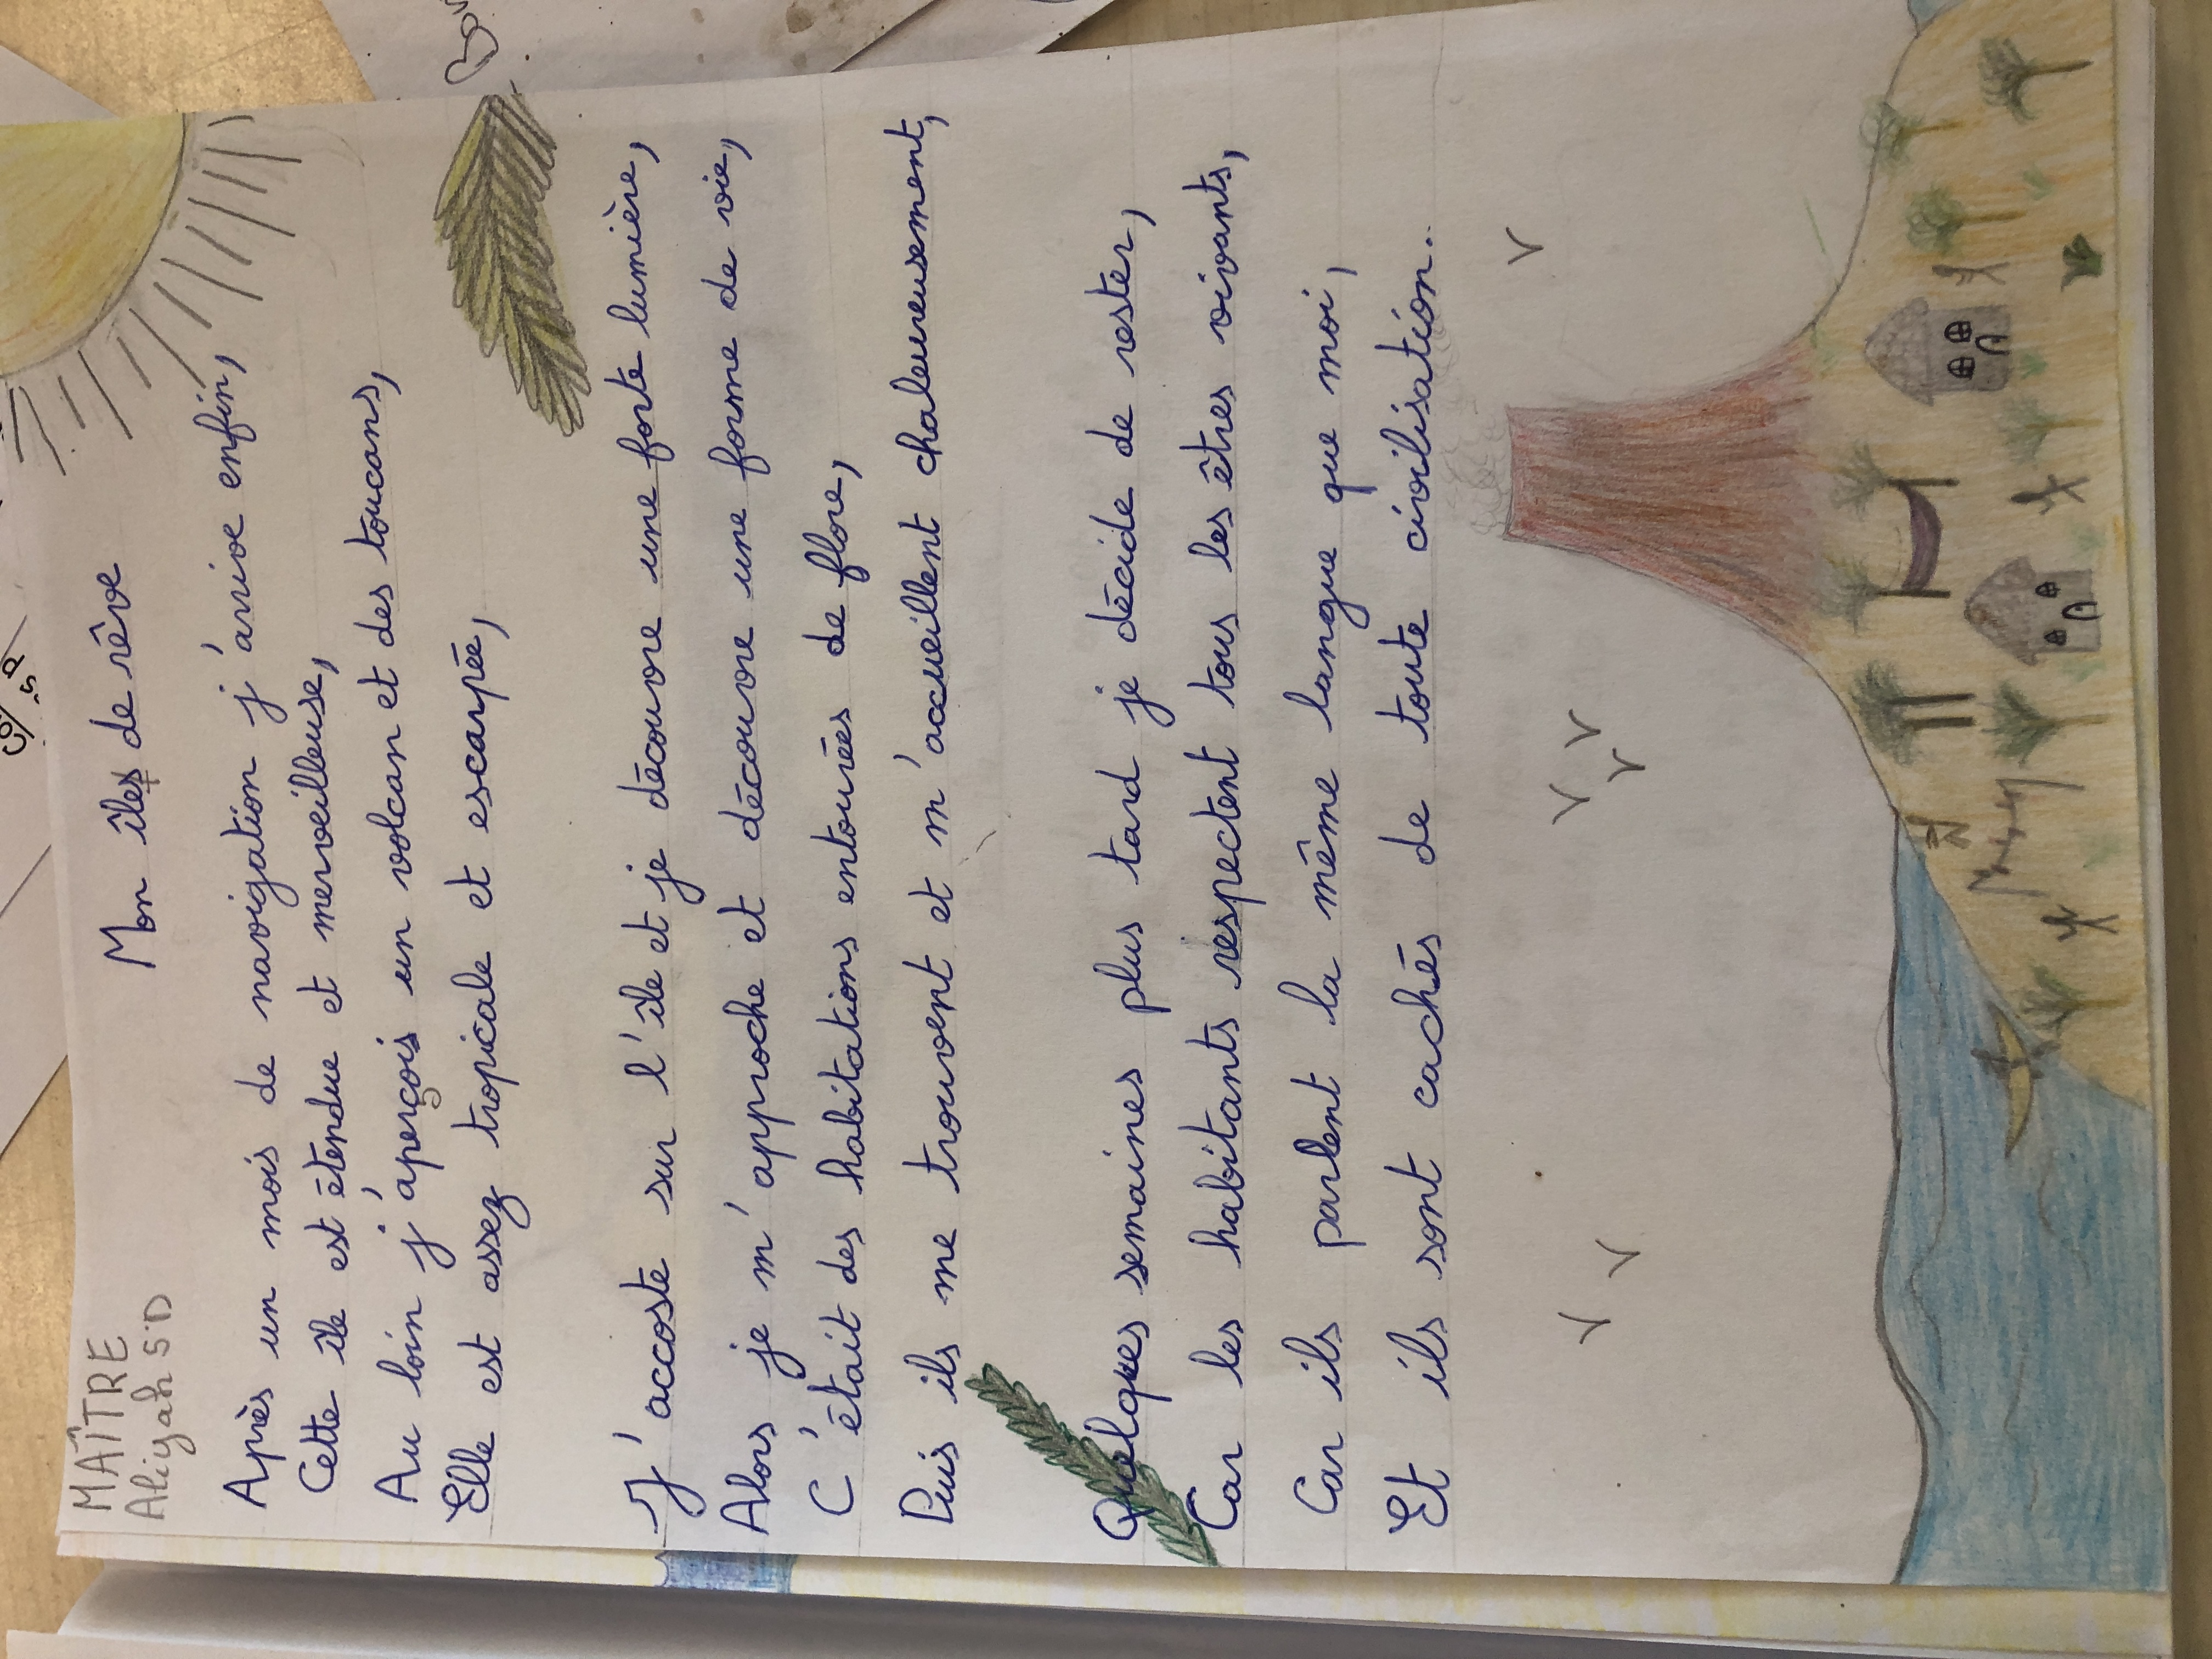 MAÎTRE
Aliyah 5°D
Mon île de rêve
Après un mois de navigation j'arrive enfin,
Cette île est étendue et merveilleuse,
Au loin j'aperçois un volcan et des toucans,
Elle est assez tropicale et escarpée,
J'accoste sur l'île et je découvre une forte lumière,
Alors je m'approche et découvre une forme de vie,
C'était des habitations entourées de flore,
Puis ils me trouvent et m'accueillent chaleureusement,
Quelques semaines plus tard je décide de rester,
Car les habitants respectent tous les êtres vivants,
Car ils parlent la même langue que moi,
Et ils sont cachés de toute civilisation.